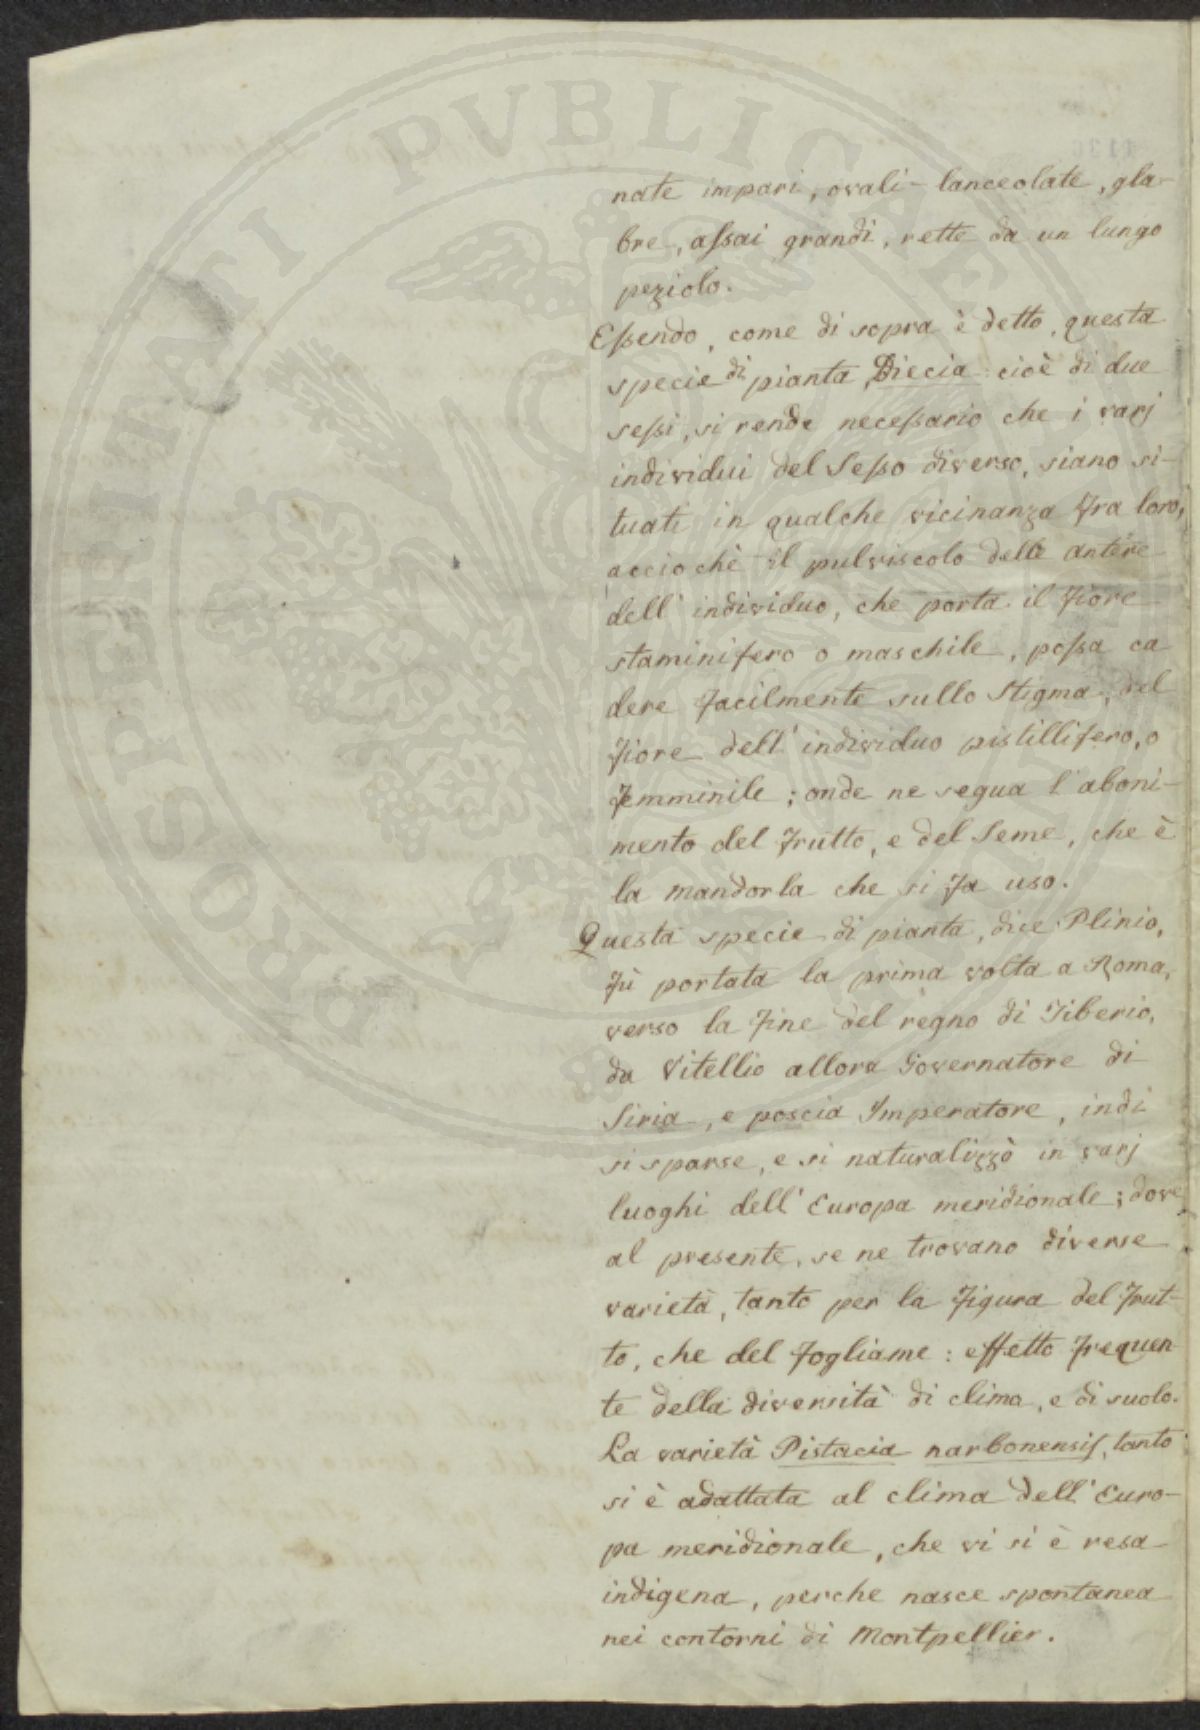 PROSPERITATI PVBLICAE
nate impari, ovali-lanceolate, gla-
bre, aſsai grandi, rette da un lungo
peziolo.
Eſsendo, come di sopra è detto, questa
specie di pianta, Diecia cioè di due
seſsi, si rende neceſsario che i varj
individui del Seſso diverso, siano si-
tuati in qualche vicinanza fra loro,
acciochè il pulviscolo delle antere
dell' individuo, che porta il fiore
staminifero o maschile, poſsa ca
dere facilmente sullo Stigma, del
fiore dell' individuo pistillifero, o
femminile; onde ne segua l' aboni-
mento del frutto, e del Seme, che è
la mandorla che si fa uso.
Questa specie di pianta, dice Plinio,
fù portata la prima volta a Roma,
verso la fine del regno di Tiberio,
da Vitellio allora Governatore di
Siria, e poscia Imperatore, indi
si sparse, e si naturalizzò in varj
luoghi dell' Europa meridionale; dove
al presente, se ne trovano diverse
varietà, tanto per la figura del frut-
to, che del fogliame: effetto frequen
te della diversità di clima, e di suolo.
La varietà Pistacia narbonensis, tanto
si è adattata al clima dell' Euro-
pa meridionale, che vi si è resa
indigena, perche nasce spontanea
nei contorni di Montpellier.